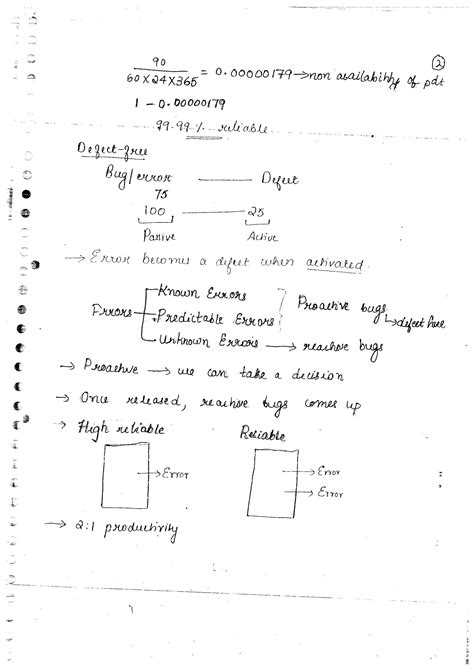 2
90
60X24X365 = 0.00000179 → non availability of pdt
1 - 0.00000179
99.99% reliable
Defect-free
Bug/error Defect
75
100 25
Passive Active
→ Error becomes a defect when activated.
Known Errors
Errors Predictable Errors Proactive bugs
↳ defect free
Unknown Errors → reactive bugs
→ Proactive → we can take a decision
→ Once released, reactive bugs comes up
→ High reliable Reliable
→ Error → Error
→ Error
→ 2:1 productivity